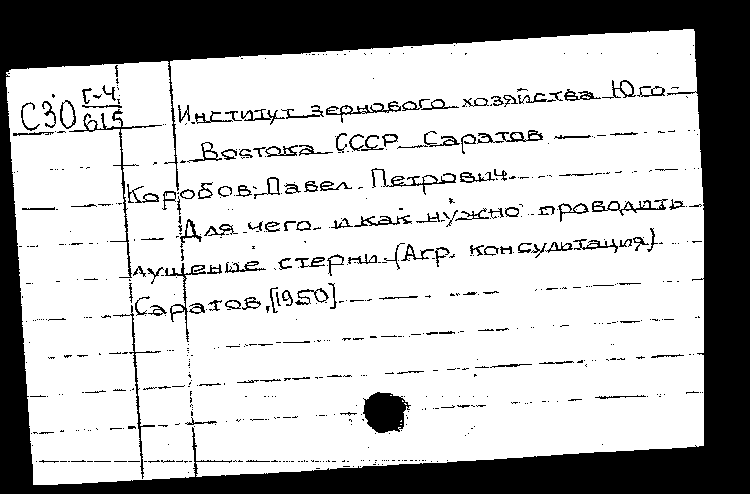 СЗО Г-4
615
Институт зернового хозяйства Юго-
Востока СССР Саратов
Коробов, Павел Петрович.
Для чего и как нужно проводить
лущение стерни. (Агр. консультация)
Саратов, [1950]